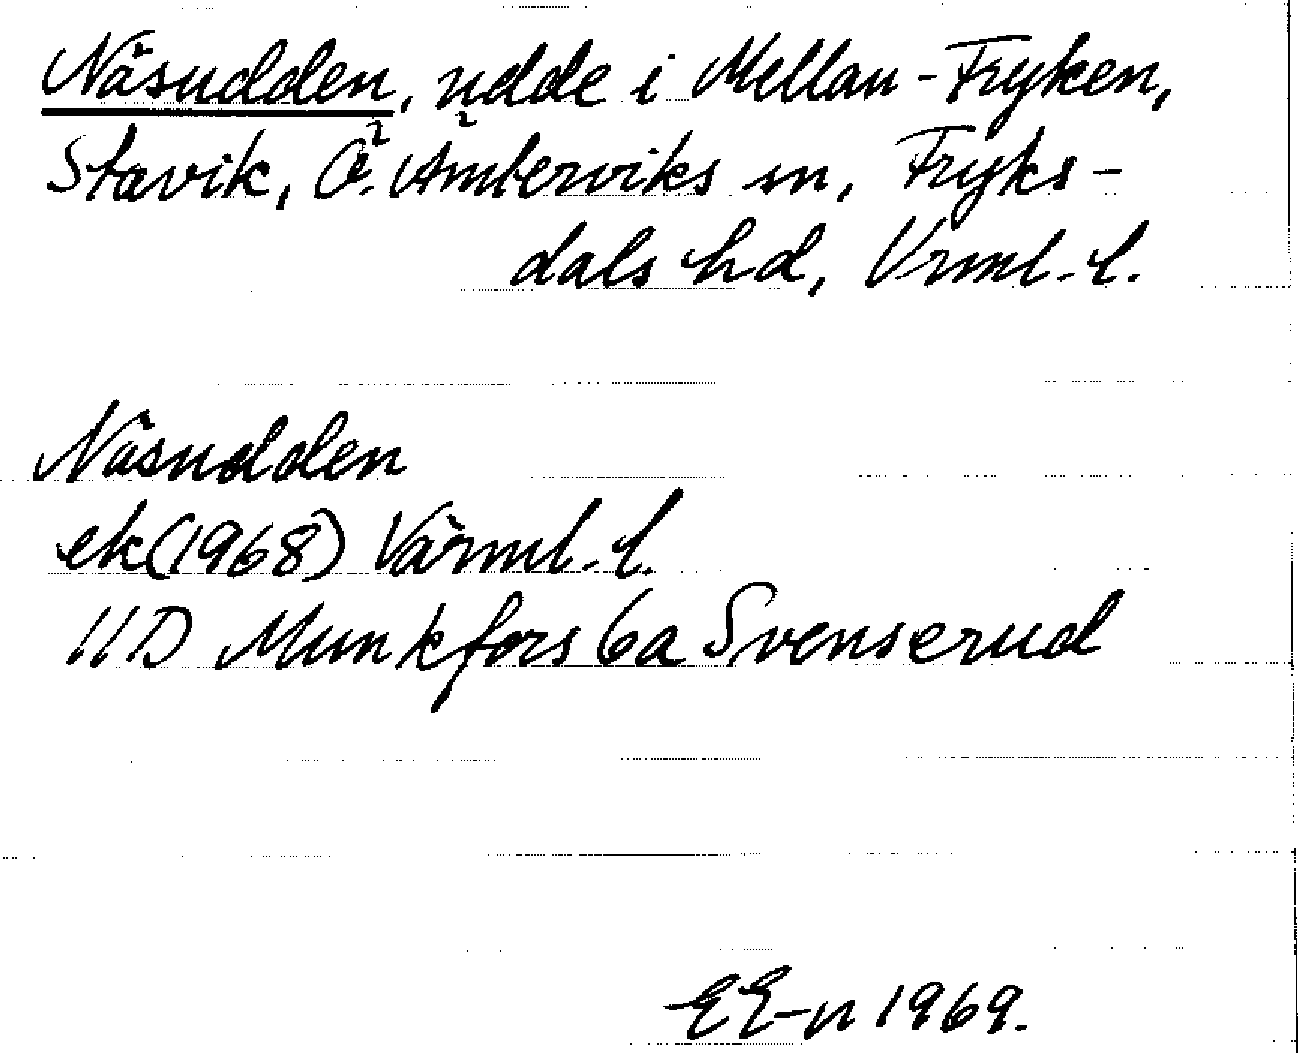 Näsudden, udde i Mellan-Fryken,
Stavik, Ö. Ämterviks sn, Fryks-
dals hd, Vrml. l.
Näsudden
ek (1968) Värml. l.
11D Munkfors 6a Svenserud
EE-n 1969.